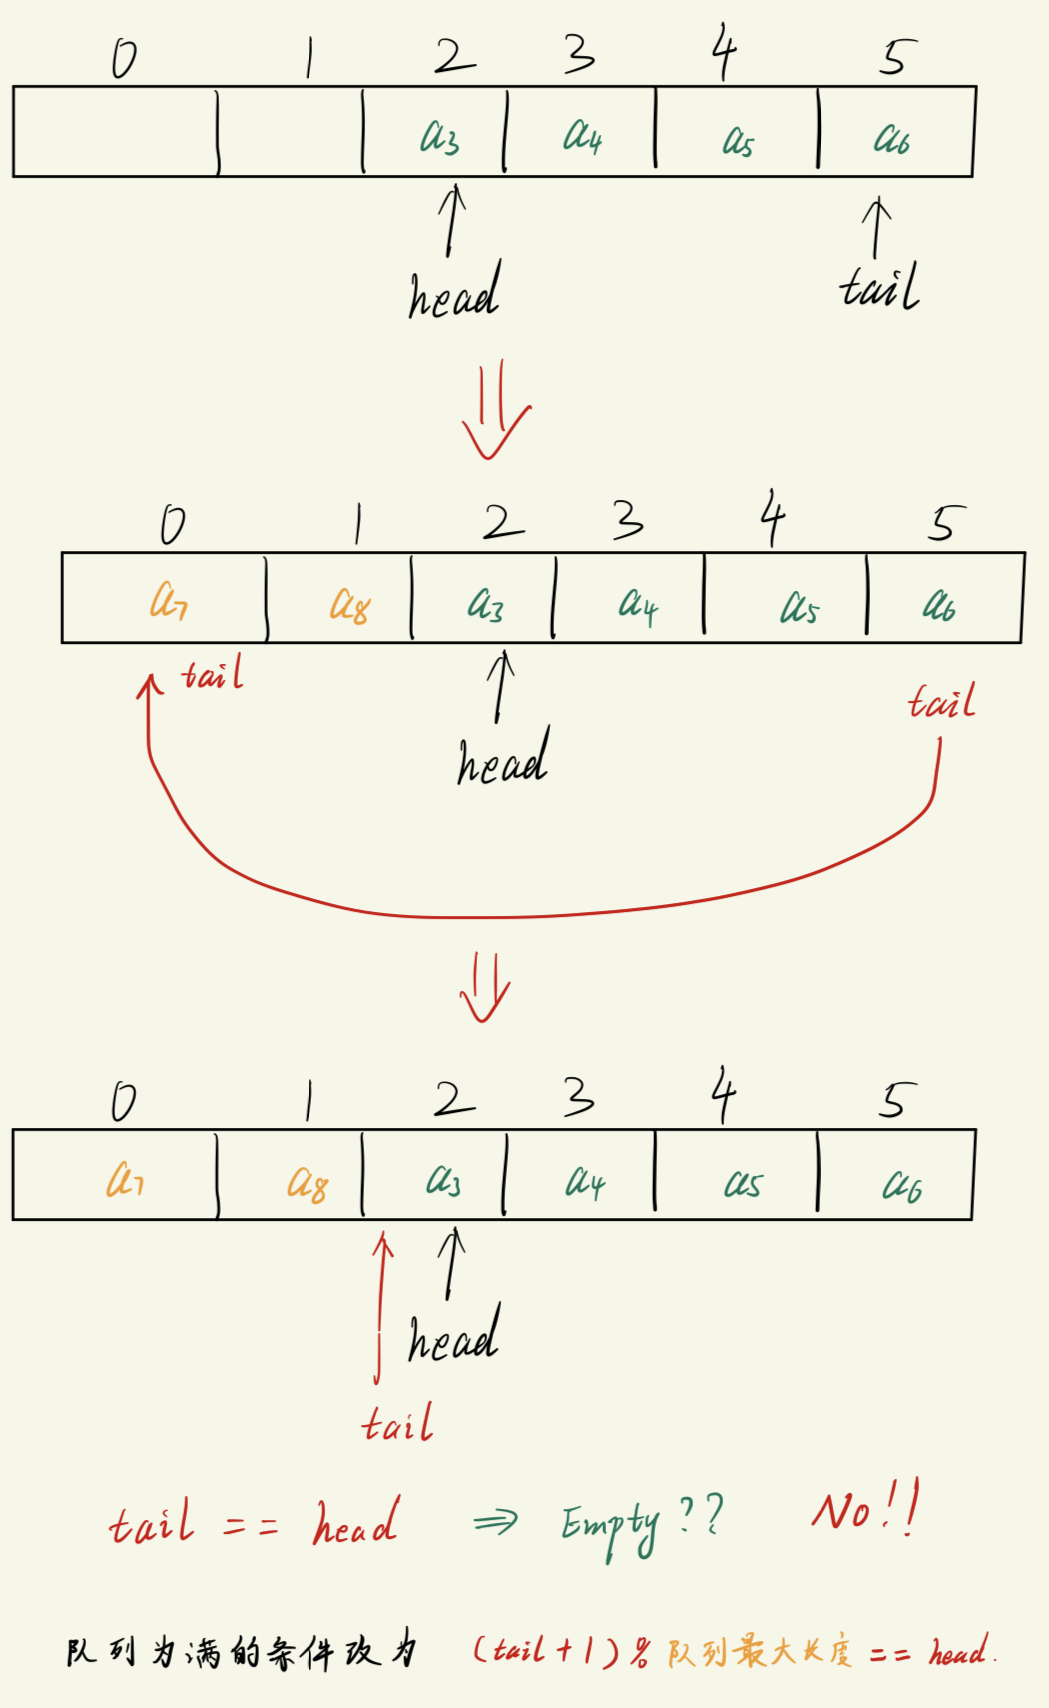 0 1 2 3 4 5
a3 a4 a5 a6
head tail
0 1 2 3 4 5
a7 a8 a3 a4 a5 a6
tail tail
head
0 1 2 3 4 5
a7 a8 a3 a4 a5 a6
head
tail
tail == head ⇒ Empty?? No!!
队列为满的条件改为 (tail+1)%队列最大长度 == head.